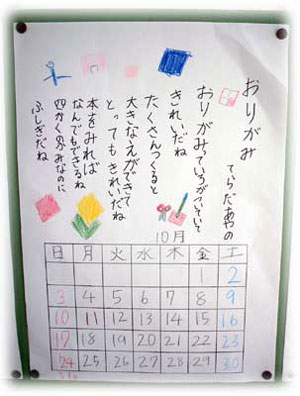 おりがみ
てらだあやの
おりがみっていろがついていて
きれいだね
たくさんつくると
大きなえができて
とってもきれいだね
本をみれば
なんでもできるね
四かくのかみなのに
ふしぎだね
10月
日 月 火 水 木 金 土
2
3 4 5 6 7 8 9
10 11 12 13 14 15 16
17 18 19 20 21 22 23
24 25 26 27 28 29 30
31